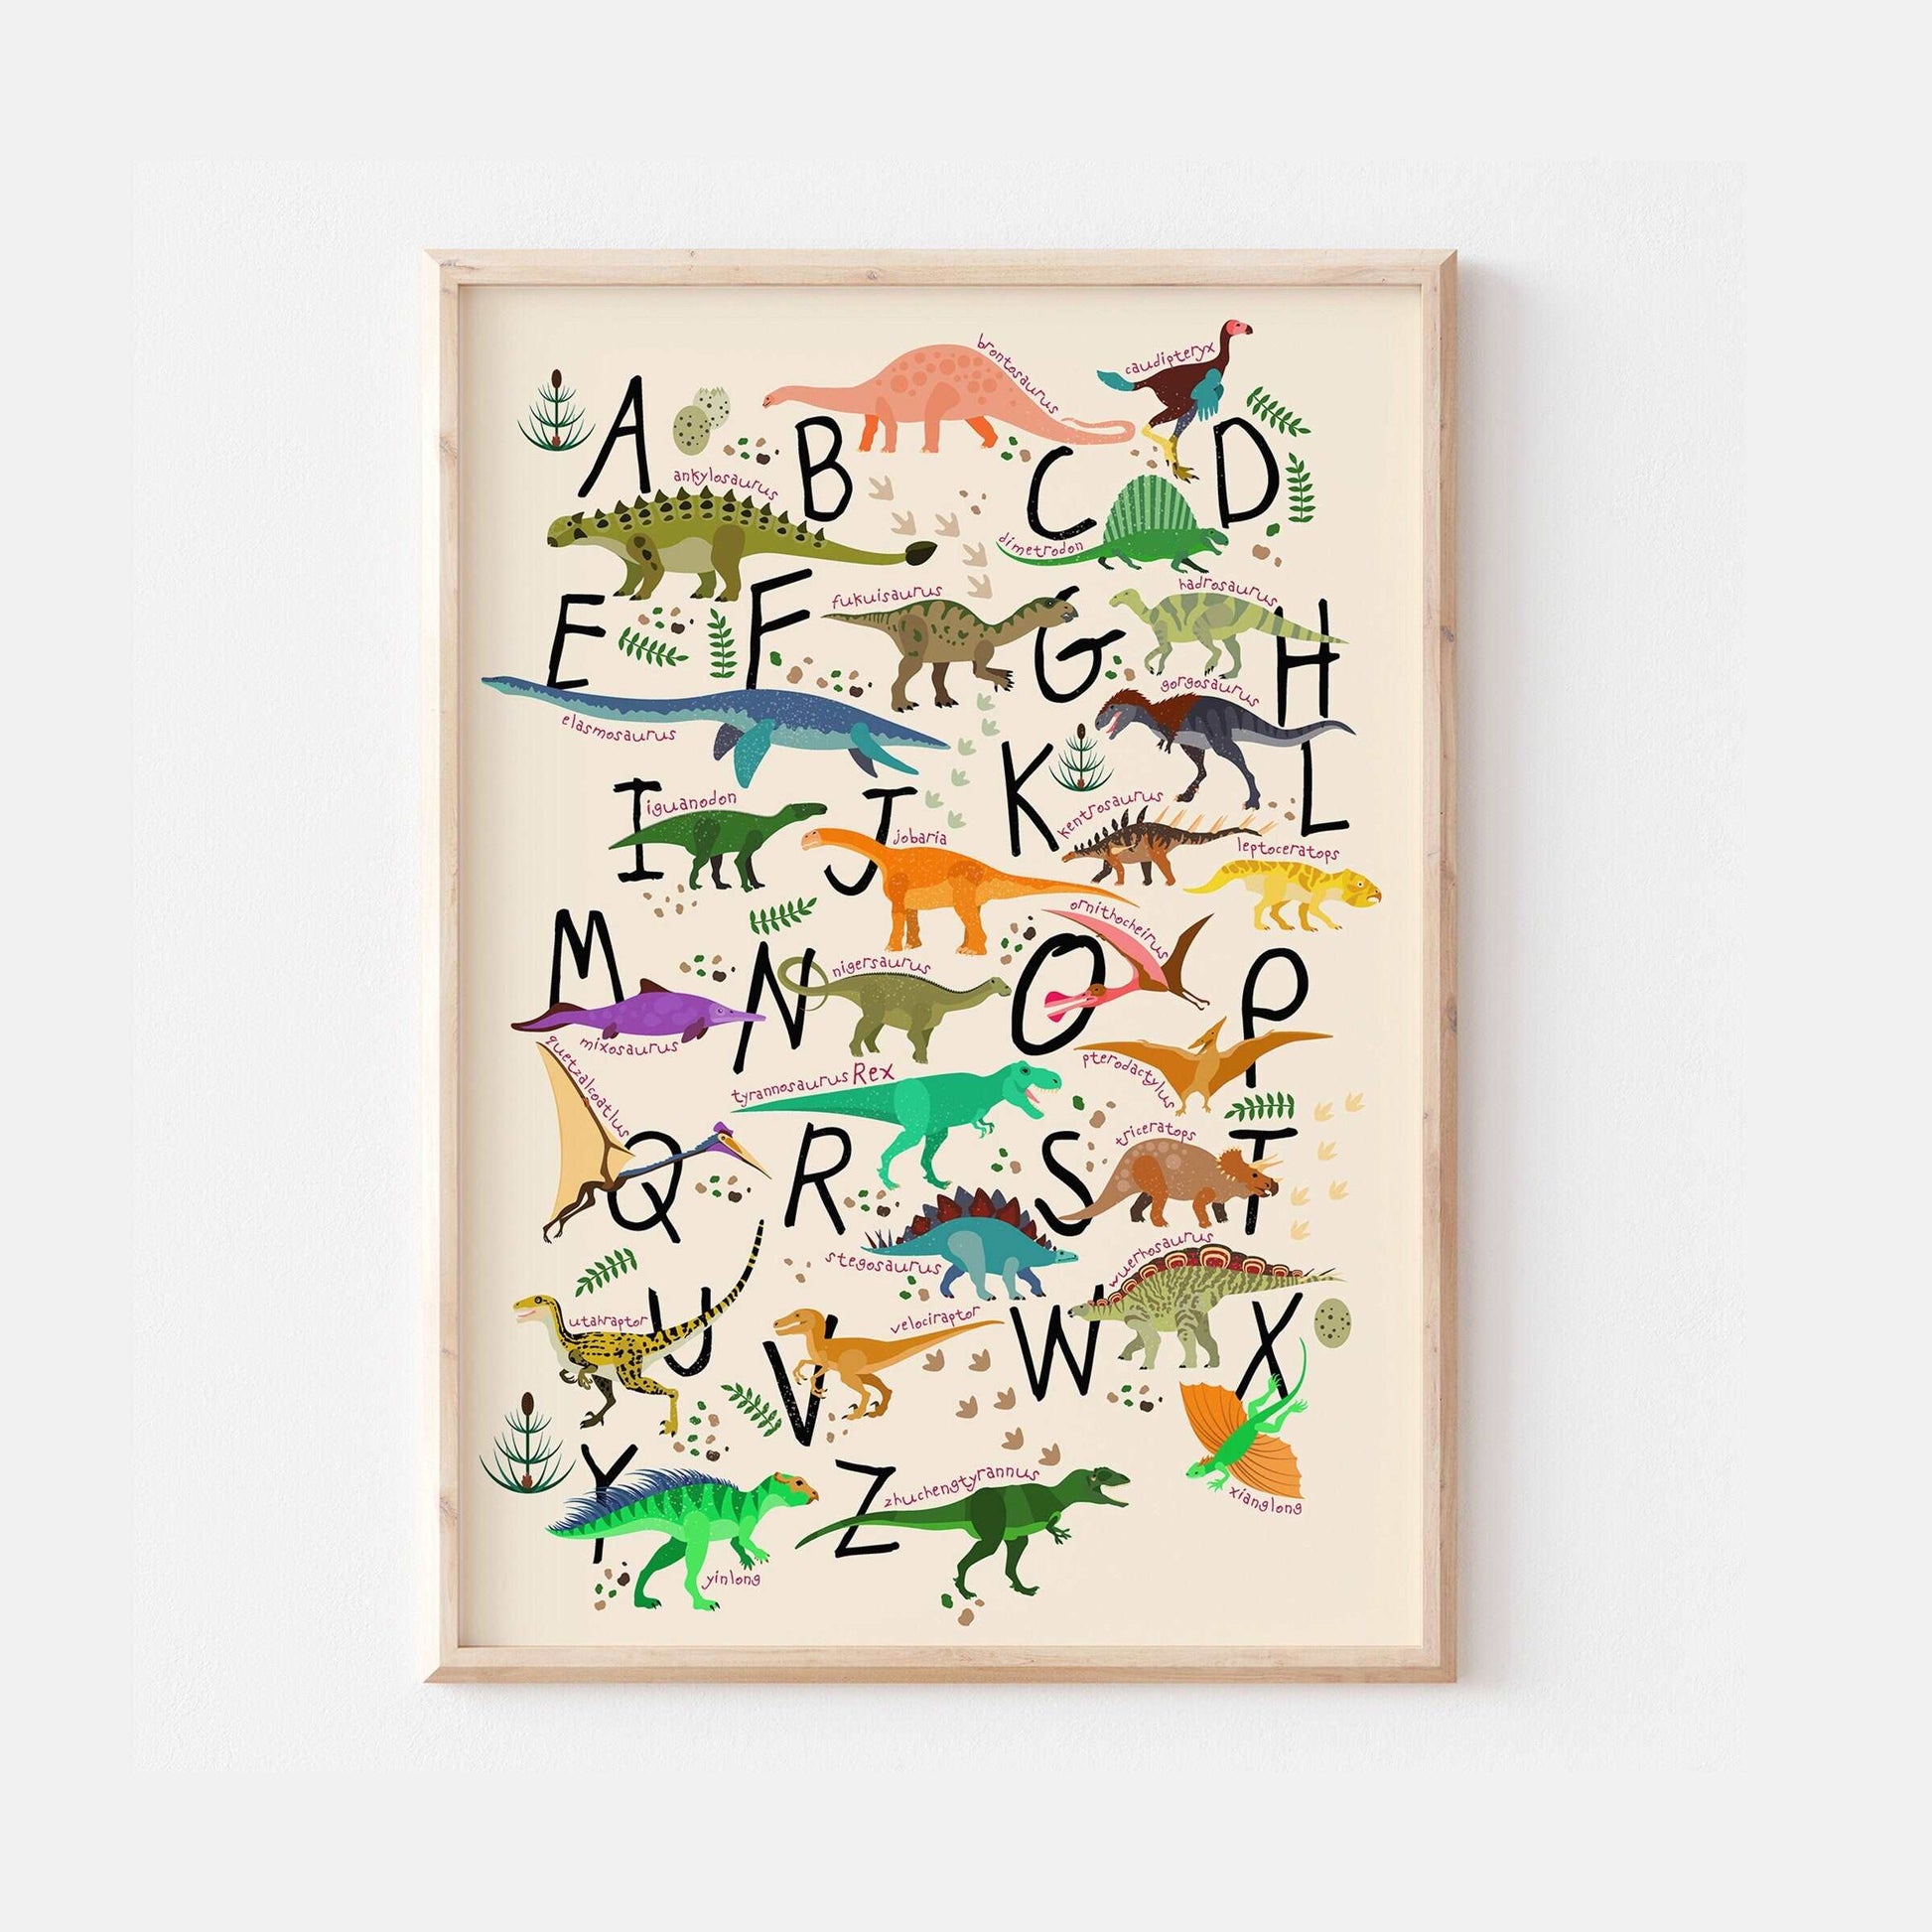 brontosaurus
caudipteryx
A
B
C
D
ankylosaurus
dimetrodon
E
F
fukuisaurus
G
hadrosaurus
H
gorgosaurus
elasmosaurus
I
iguanodon
J
jobaria
K
kentrosaurus
L
leptoceratops
M
N
nigersaurus
O
ornithocheirus
P
mixosaurus
quetzalcoatlus
tyrannosaurus Rex
pterodactylus
Q
R
S
triceratops
T
stegosaurus
wuerhosaurus
utahraptor
U
V
velociraptor
W
X
Y
Z
zhuchengtyrannus
xianglong
yinlong